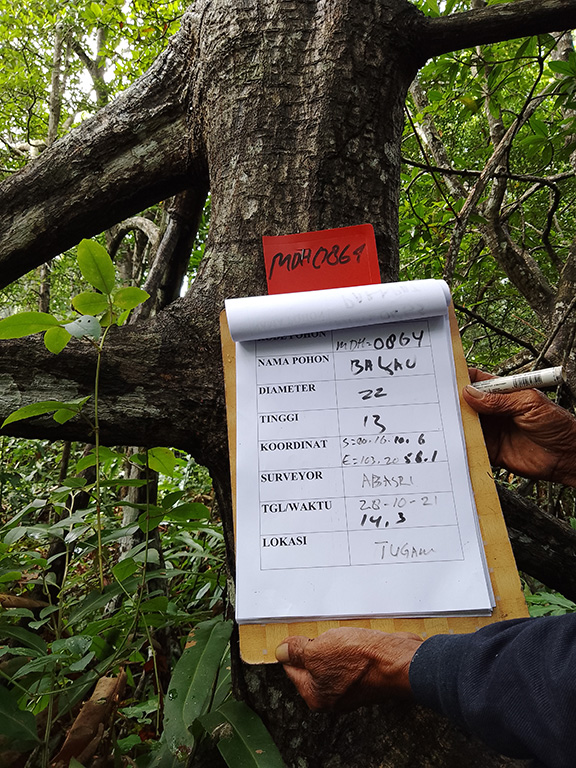 MDH0864
KODE POHON MDH=0864
NAMA POHON BAKAU
DIAMETER 22
TINGGI 13
KOORDINAT S=00.16.10.6
E=103.20 58.1
SURVEYOR ABASRI
TGL/WAKTU 28-10-21
14.3
LOKASI TUGAM